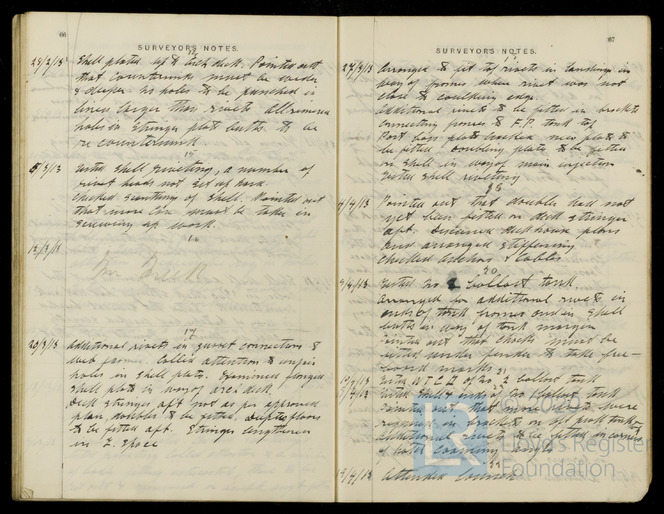 66
SURVEYORS NOTES.
25/2/13 Shell plated up to deck. Pointed out
that countersunk must be wider
& deeper as holes to be punched in
liners larger than rivets all
holes in stringer plate butts to be
re countersunk
15
5/3/13 Tested shell riveting, a number of
rivet heads not set up hard.
Checked scantlings of shell. Pointed out
that more care must be taken in
screwing up work.
16
12/3/13
17
20/3/13 Additional rivets in connection &
web frames Called attention to unfair
holes in shell plate. Examined flanged
shell plate in way of deck
Deck stringer aft not as per approved
plan, doubler to be fitted. Deep floors
to be fitted aft. Stringer lengthened
in E. Space
67
SURVEYORS NOTES.
27/3/13 Arranged to fit rivets in landings in
way of frames when rivet was not
close to caulking edge.
Additional rivets to be fitted in brackets
connecting frames to F.P. tank top
Port boss plate cracked new plate to
be fitted doubling plate to be fitted
on shell in way of main injection
Tested shell riveting
4/4/13 Pointed out that doubler had not
yet been fitted on deck stringer
aft. Discussed deckhouse plans
and arranged stiffening
Checked anchors & cables
20
9/4/13 Tested No 2 ballast tank.
Arranged for additional rivets in
ends of tank frames and in shell
butts in way of tank margin
Pointed out that chocks must be
fitted under fender to take free-
board marks
21
of No 2 Ballast tank
Tested shell & ends of No Ballast tank
Pointed out that more were
required in brackets on aft peak tank top
Additional rivets to be fitted in corners
of hatch coaming angles
22
Attended launch
© 2025
LR
Lloyd's Register
Foundation